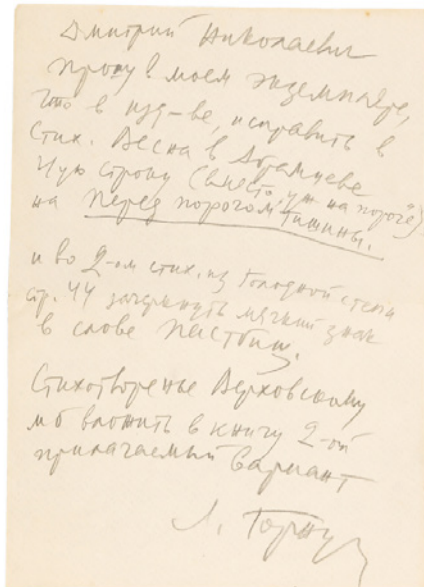 Дмитрий Николаевич
прошу в моем экземпляре,
что в изд-ве, исправить в
стих. Весна в Абрамцеве
4ую строку (вместо уж на пороге)
на Перед порогом тишины.
и во 2-ом стих. из Голодной степи
стр. 44 зачеркнуть мягкий знак
в слове пастбищ.
Стихотворенье Верховскому
мб вложить в книгу 2-ой
прилагаемый вариант
Л. Горнунг